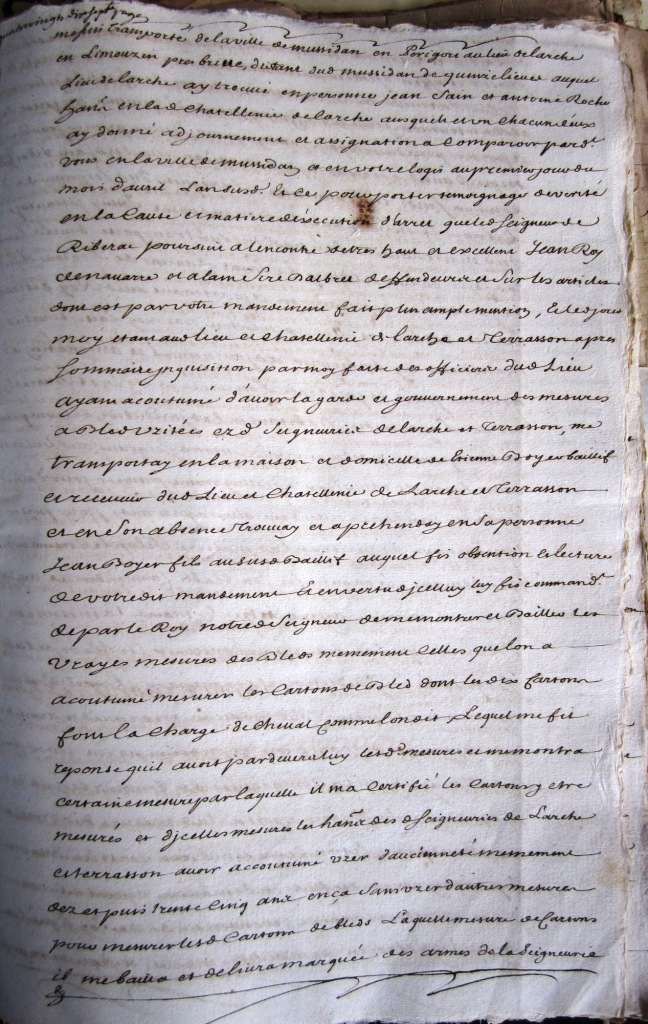 quatrevingt dix sept page
mesuis transporté de la ville de mussidan en Périgort au lieu de larche
en Limouzin pres brive, distant dud mussidan de quinze lieues auquel
Lieu de larche ay trouvé en personnes jean Sain et antoine Roche
hants en lad Chatellenie de larche ausquels et un chacun d'eux
ay donné adjournement et assignation a Comparoir pard.t
vous en la ville de mussidan et en votre logis au premier jour du
mois d'avril Lan susd. Et ce pour porter temoignage de verité
en la Cause et matiere d'execution d'arret que led Seigneur de
Riberac poursuit a lencontre de tres haut et excellent Jean Roy
de navarre et alain Sire Dalbret deffendeurs et sur les articles
dont est par votre mandement fait plus ample mention, Et led jour
moy etant aud lieu et Chatellenie de larche et Terrasson apres
Sommaire jnquisition par moy faite des officiers dud Lieu
ayant acoutumé d'avoir la garde et gouvernement des mesures
a Bled uzitées ezd Seigneuries de larche et Terrasson, me
transportay en la maison et domicille de Etienne Boyer baillif
et receveur dud Lieu et Chatellenie de Larche et Terrasson
et en Son absence Trouvay et aprehenday en Sa personne
Jean Boyer fils au susd Baillif auquel fis ostention et lecture
de votredit mandement Et en vertu d'jcelluy luy fis command.t
de par le Roy notred Seigneur de me montrer et Bailler les
vrayes mesures des Bleds memement Celles que lon a
acoutumé mesurer les Cartons de Bled dont les dix Cartons
font la Charge de Cheval Comme lon dit Lequel me fit
reponse qu'il avoit par devera luy lesd. mesures et me montra
certaine mesure par laquelle il ma Certifié les Cartons y etre
mesurés et d'jcelles mesures les hants des d Seigneuries de Larche
et terrasson avoir accoutumé uzer d'ancienneté memement
dez et puis trente Cinq ans en ça Sans uzer d'autres mesures
pour mesurer lesd Cartons de bleds Laquelle mesure de Cartons
il me bailla et delivra marquée des armes de la Seigneurie